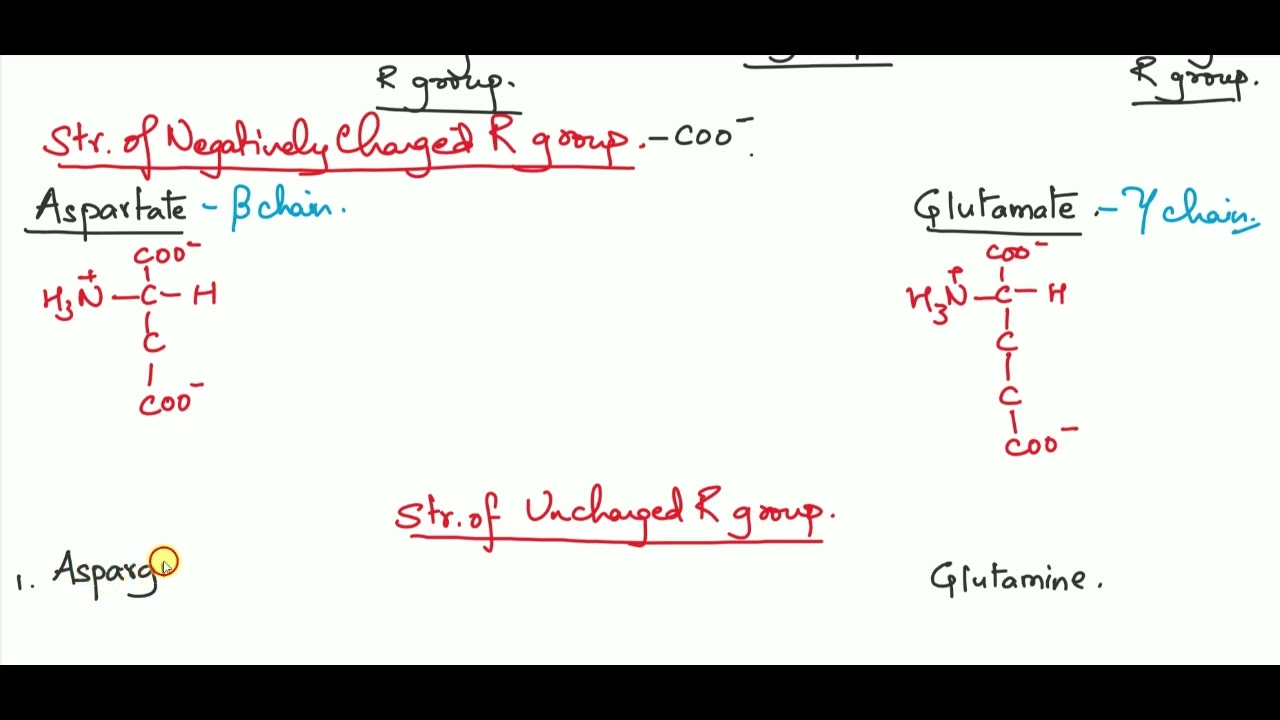 R group.
R group.
Str. of Negatively Charged R group. - COO⁻.
Aspartate - β chain.
Glutamate. - γ chain.
COO⁻
H₃N⁺ - C - H
C
COO⁻
COO⁻
H₃N⁺ - C - H
C
C
COO⁻
Str. of Uncharged R group.
1. Asparg
Glutamine.